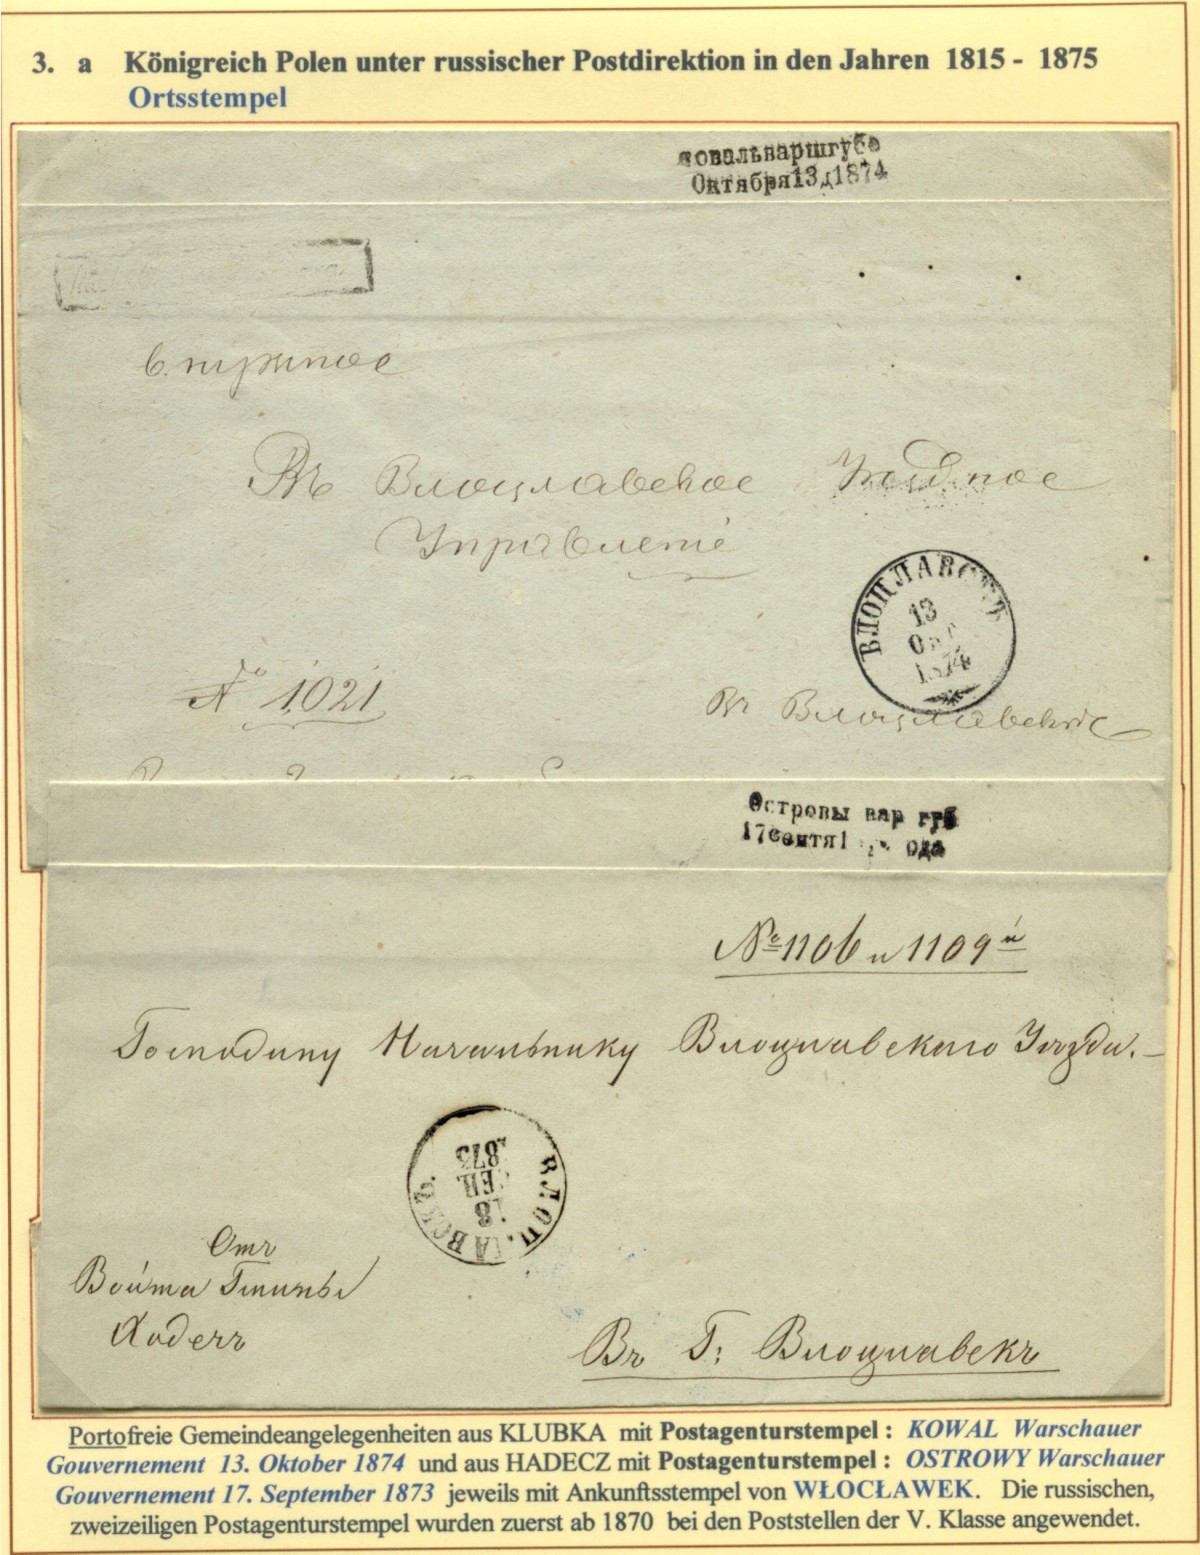 3. a Königreich Polen unter russischer Postdirektion in den Jahren 1815 - 1875
Ortsstempel
ковальваршгубе
Октября13д1874
Въ Влоцлавское Уѣздное
Управленіе
ВЛОЦЛАВСКЪ
13
ОКТ
1874
№ 1021
Въ Влоцлавскѣ
Островы вар губ
17сентя1 ода
№ 1106 и 1109й
Господину Начальнику Влоцлавскаго Уѣзда.
ВЛОЦЛАВСКЪ.
18
СЕП
1873
Отъ
Войта Гмины
Ходечъ
Въ Г: Влоцлавскъ
Portofreie Gemeindeangelegenheiten aus KLUBKA mit Postagenturstempel : KOWAL Warschauer
Gouvernement 13. Oktober 1874 und aus HADECZ mit Postagenturstempel : OSTROWY Warschauer
Gouvernement 17. September 1873 jeweils mit Ankunftsstempel von WŁOCŁAWEK. Die russischen,
zweizeiligen Postagenturstempel wurden zuerst ab 1870 bei den Poststellen der V. Klasse angewendet.